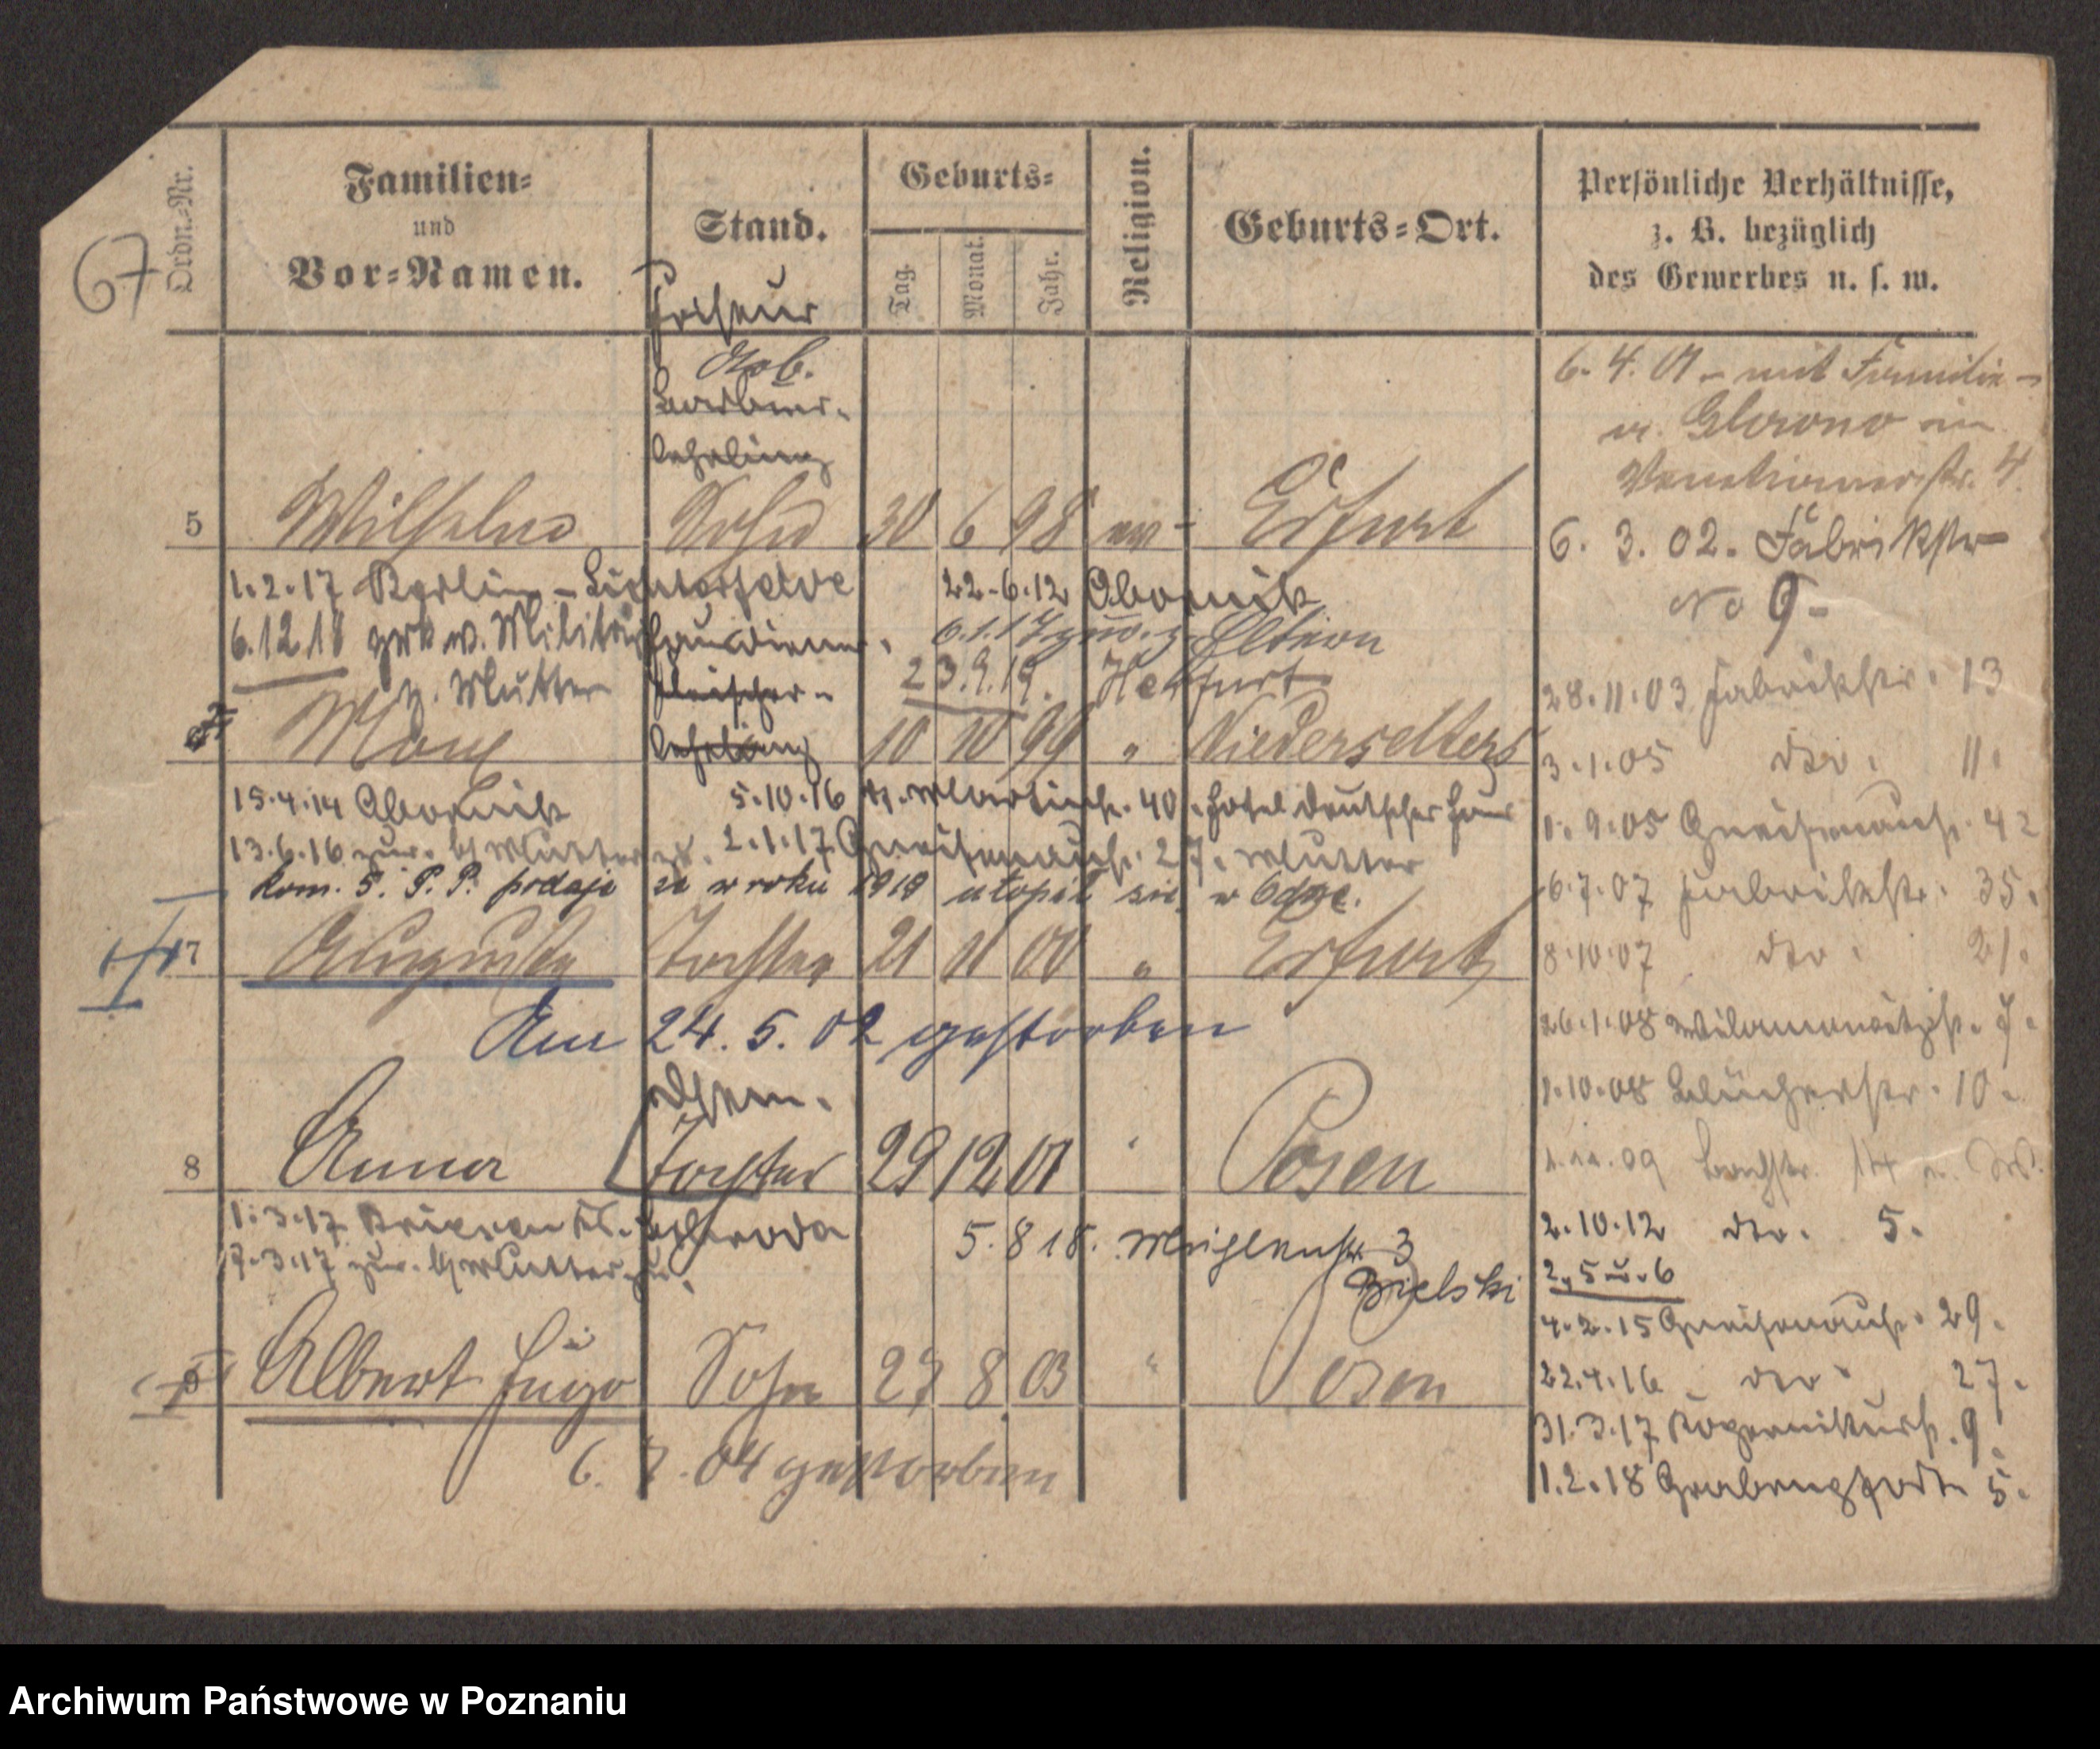 67
Ordn.-Nr.
Familien-
und
Vor-Namen.
Stand.
Geburts-
Tag.
Monat.
Jahr.
Religion.
Geburts-Ort.
Persönliche Verhältnisse,
z. B. bezüglich
des Gewerbes u. s. w.
Friseur
Barbier-
lehrling
5 Wilhelm Sohn 30 6 98 ev Erfurt
1.2.17 Berlin-Lichterfelde 22.6.12 Obornik
6.12.18 zrk v. Militär Hausdiener. Eltern
z. Mutter Fleischer- 23.9.19.
Max lehrling 10 10 99 " Niederselters
15.4.14 Obornik 5.10.16 St. Martinstr. 40. Hotel deutscher Haus
13.6.16 zur. b/ Mutter 2.1.17 Gneisenaustr. 27. Mutter
kom. 5. P. P. podaje że w roku 1919 utopił się w Odrze.
7 Auguste Tochter 21 11 00 " Erfurt
Am 24.5.02 gestorben
8 Anna Tochter 29 12 01 Posen
1.3.17 Schroda 5.8.18. 3
7.3.17 zur. b/ Mutter Bielski
9 Albert Hugo Sohn 27 8 03 " Posen
6. 7. 04 gestorben
6. 4. 01 - mit Familie -
v. in
Venetianerstr. 4.
6. 3. 02. Fabrikstr
No 9-
28.11.03 Fabrikstr. 13
3.1.05 dto. 11.
1.9.05 Gneisenaustr. 42
6.7.07 Fabrikstr. 35.
8.10.07 dto. 21.
26.1.08 Wilamowitzstr. 7.
1.10.08 Blücherstr. 10.
2.10.12 dto. 5.
2, 5 u. 6
4.2.15 Gneisenaustr. 29.
22.4.16 dto 27.
31.3.17 Kopernikusstr. 9.
1.2.18 5.
Archiwum Państwowe w Poznaniu